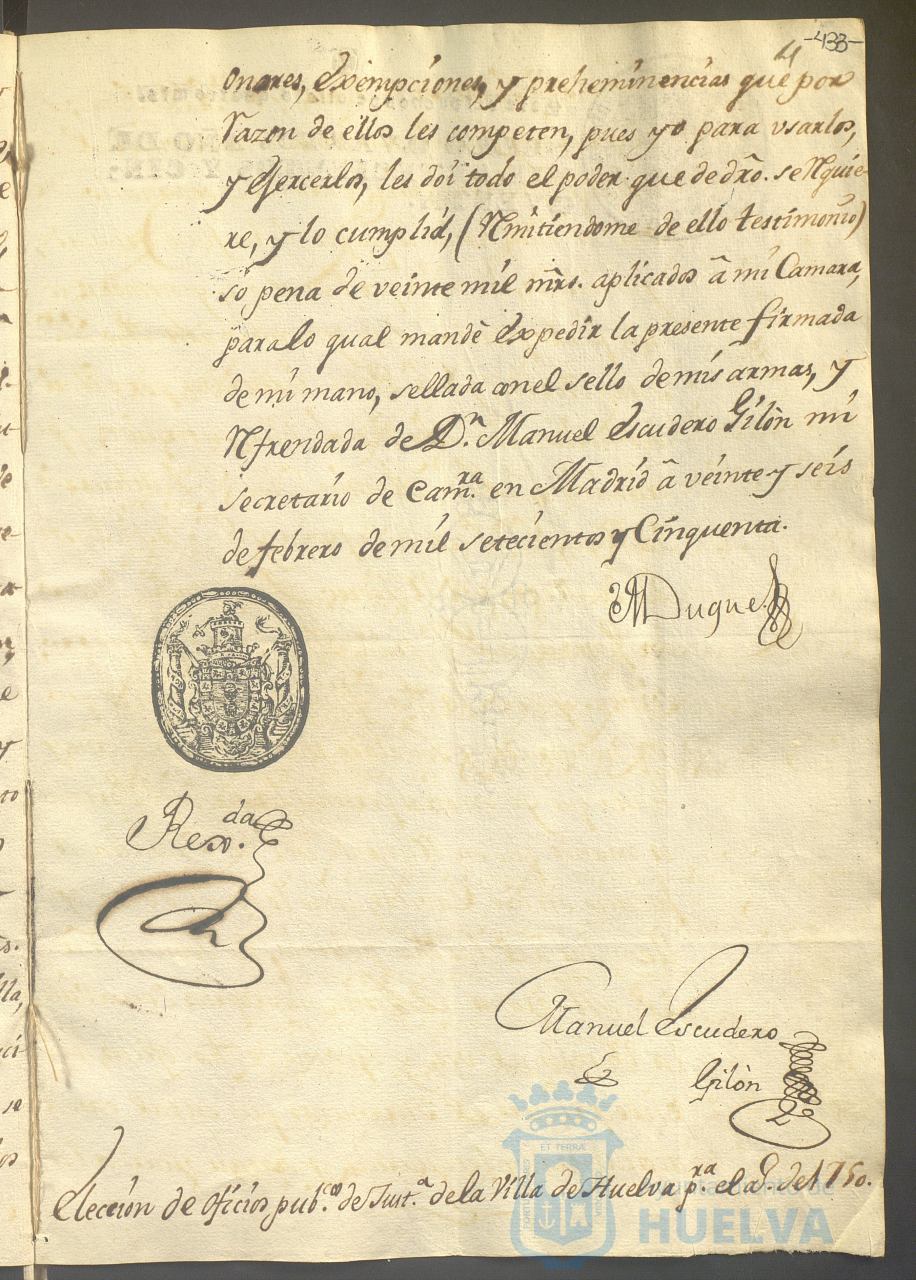 -433-
4
onores, exempciones, y preheminencias que por
razon de ellos les competen, pues yo para usarlos,
y Exercerlos, les doi todo el poder que de dro. se Rquie-
re, y lo cumplid, (Rmitiendome de ello testimonio)
so pena de veinte mil mrs. aplicados â mi Camara,
para lo qual mandè Expedir la presente firmada
de mi mano, sellada con el sello de mis armas, y
Rfrendada de Dn. Manuel Escudero Gilòn mi
secretario de Camra. en Madrid â veinte y seis
de febrero de mil setecientos y Cinquenta.
El Duque
Rexda.
Manuel Escudero
Gilòn
Elección de oficios pubcos. de Justa. de la Villa de Huelva pra. el aº. de 1750.
ET TERRÆ
Ayuntamiento de
HUELVA